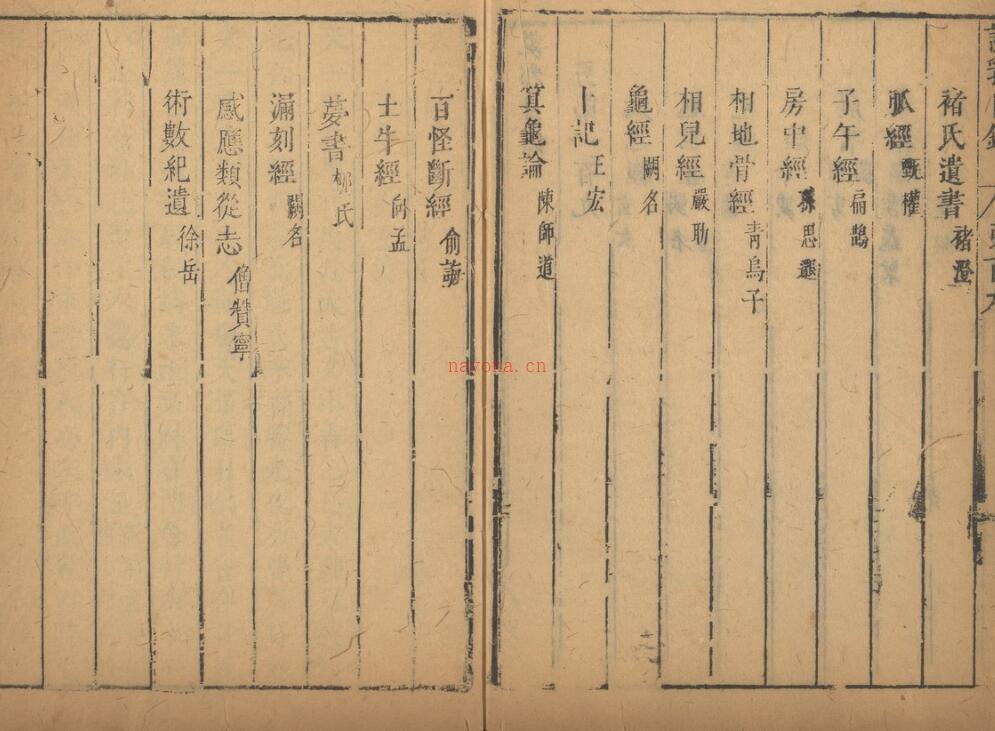 褚氏遺書 褚澄
脈經 甄權
子午經 扁鵲
房中經 孫思邈
相地骨經 青烏子
相兒經 嚴助
龜經 闕名
卜記 王宏
箕龜論 陳師道
百怪斷經 俞
土牛經 向孟
夢書 氏
漏刻經 闕名
感應類從志 僧贊寧
術數紀遺 徐岳
nayona.cn